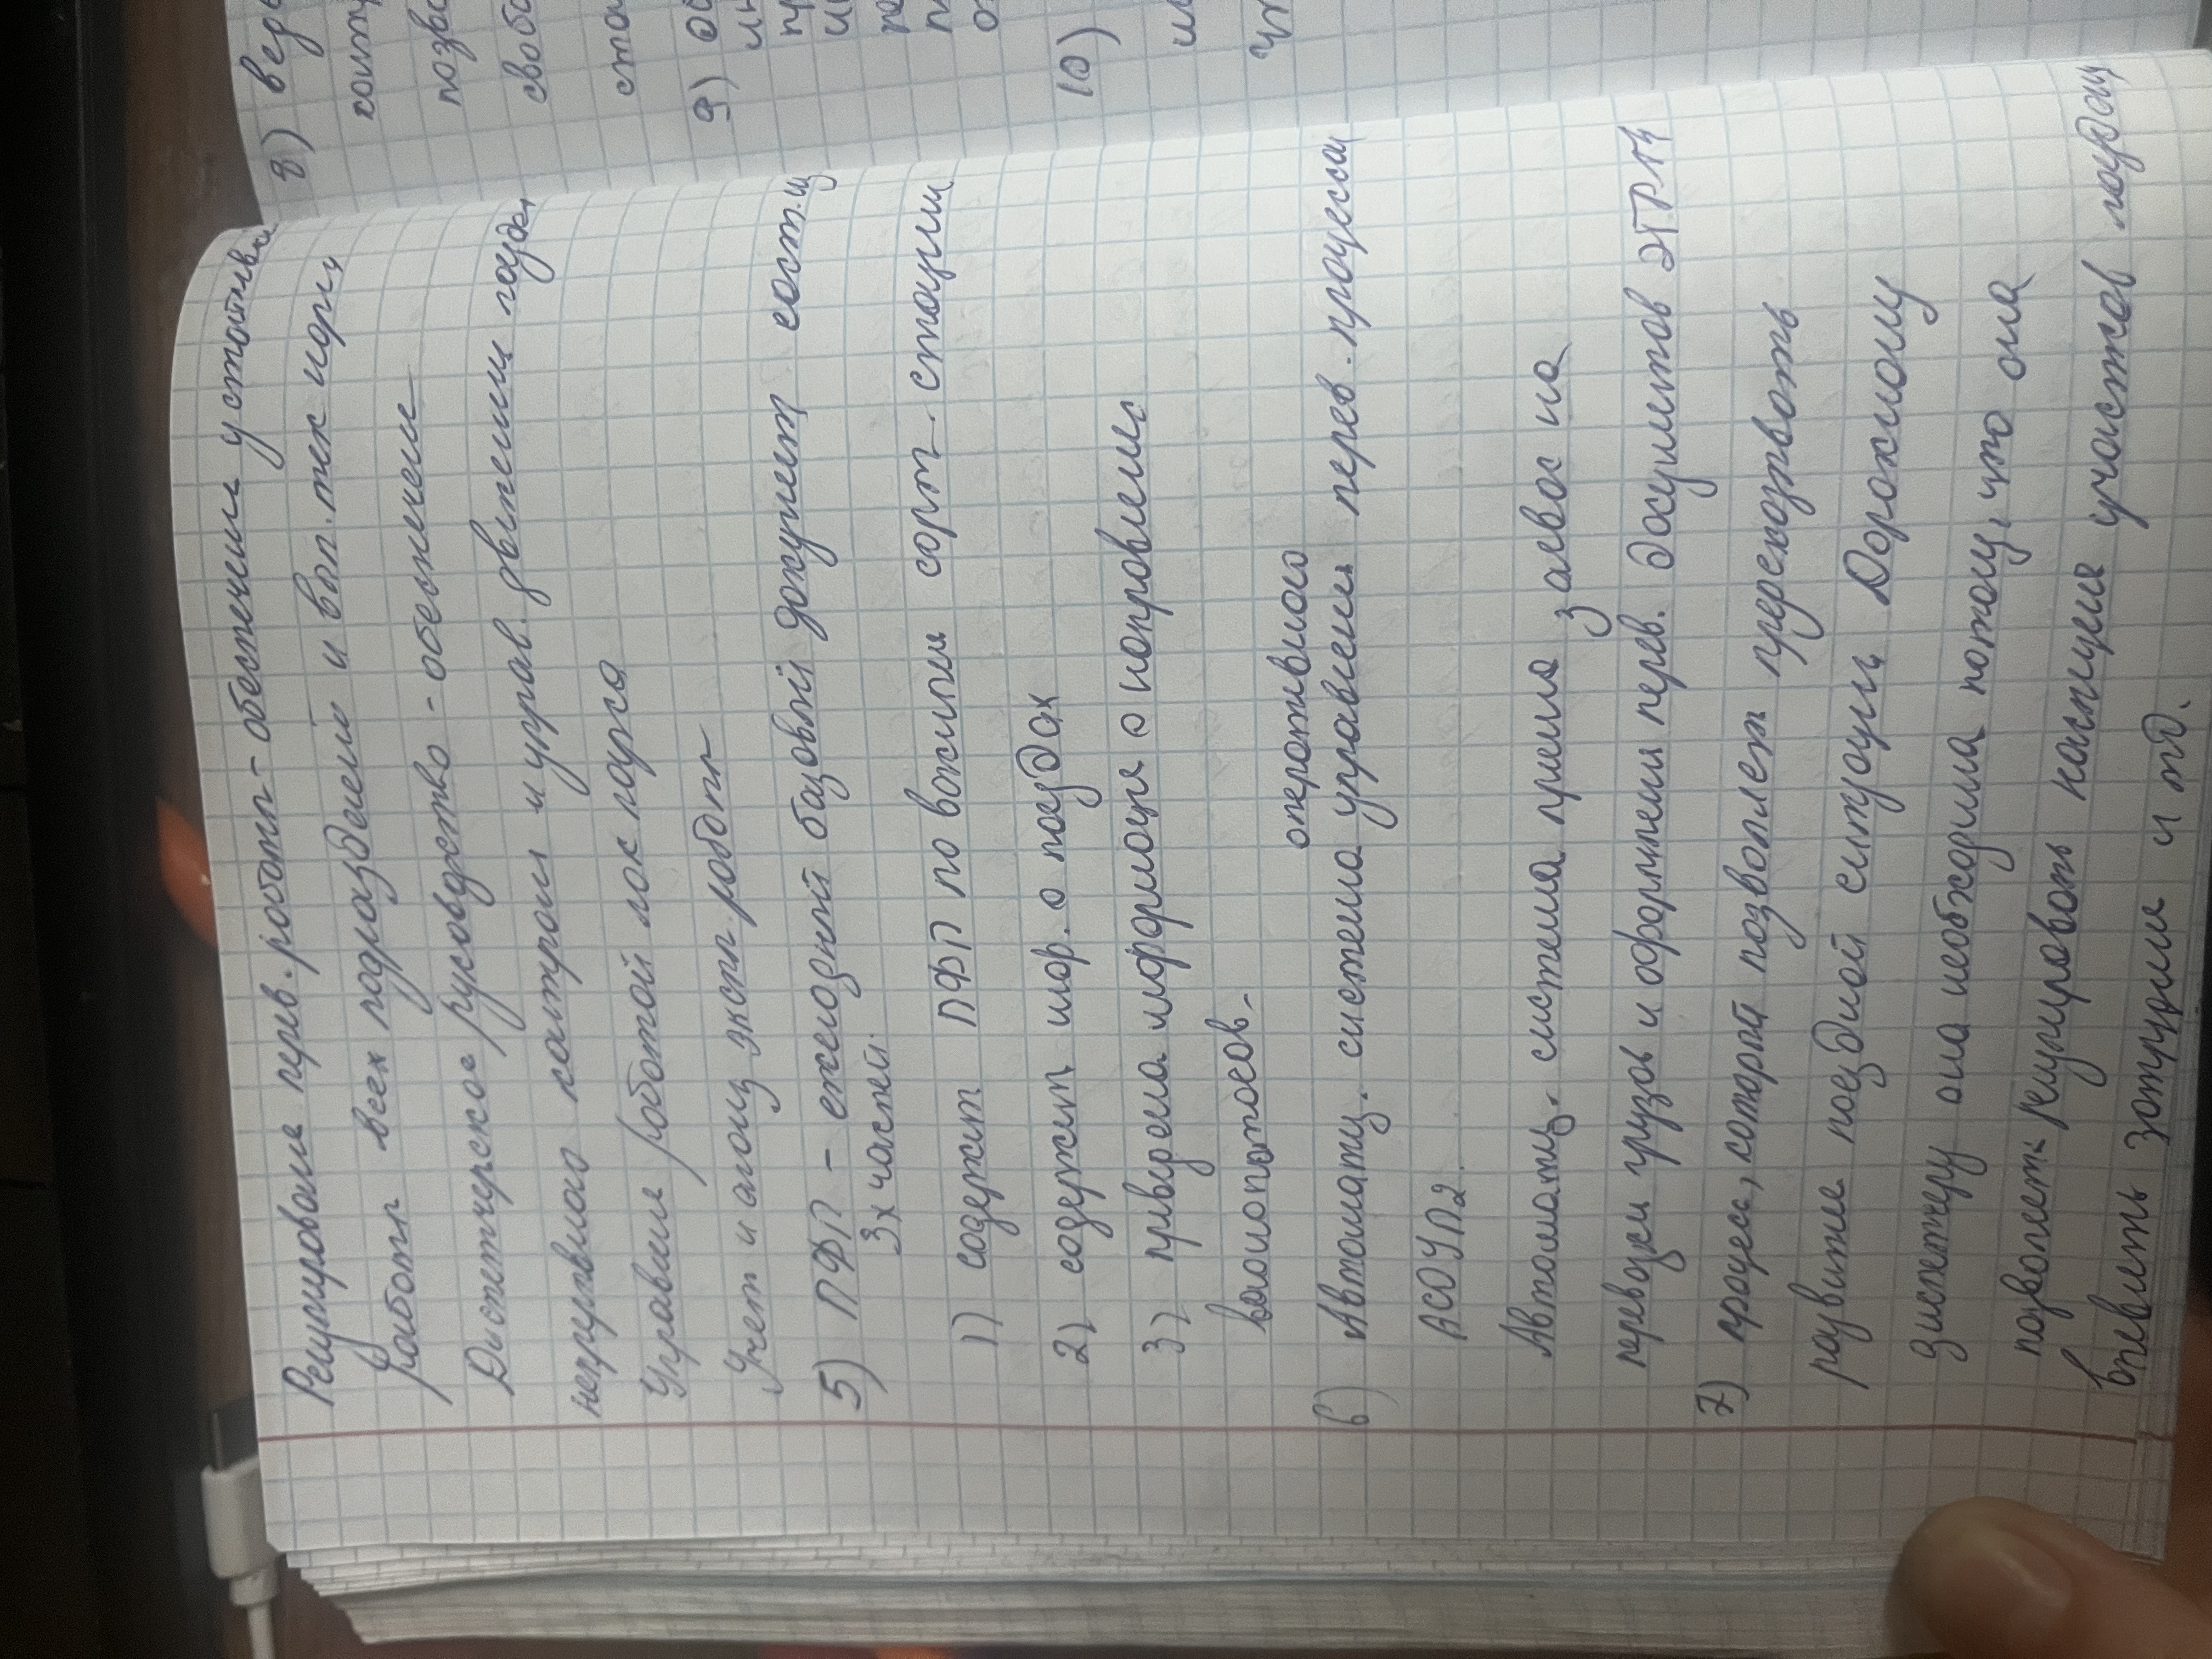 Регулирование перев. работы - обеспечении устойчивой
работы всех подразделений и вып. тех норм
Диспетчерское руководство - обеспечение
непрерывного контроля и управ. движении поезд.
Управление работой лок парка
Учет и анализ экспл. работы
5) ПФП - ежегодный базовый документ сост. из
3х частей.
1) содержит ПФП по важным сорт. станции
2) содержит инфор. о поездах
3) приведена информация о направлениях
вагонопотоков.
оперативного
6) Автоматиз. система управления перев. процессом
АСОУП2.
Автоматиз. система приема заявок на
перевозки грузов и оформлении перев. документов ЭТРАН
7) процесс, который позволяет предсказывать
развитие поездной ситуации. Дорожному
диспетчеру она необходима потому, что она
позволяет регулировать насыщение участков поездами
выявлять затруднения и тд.
8) вед
контр
позво
свобо
ста
9)
10)